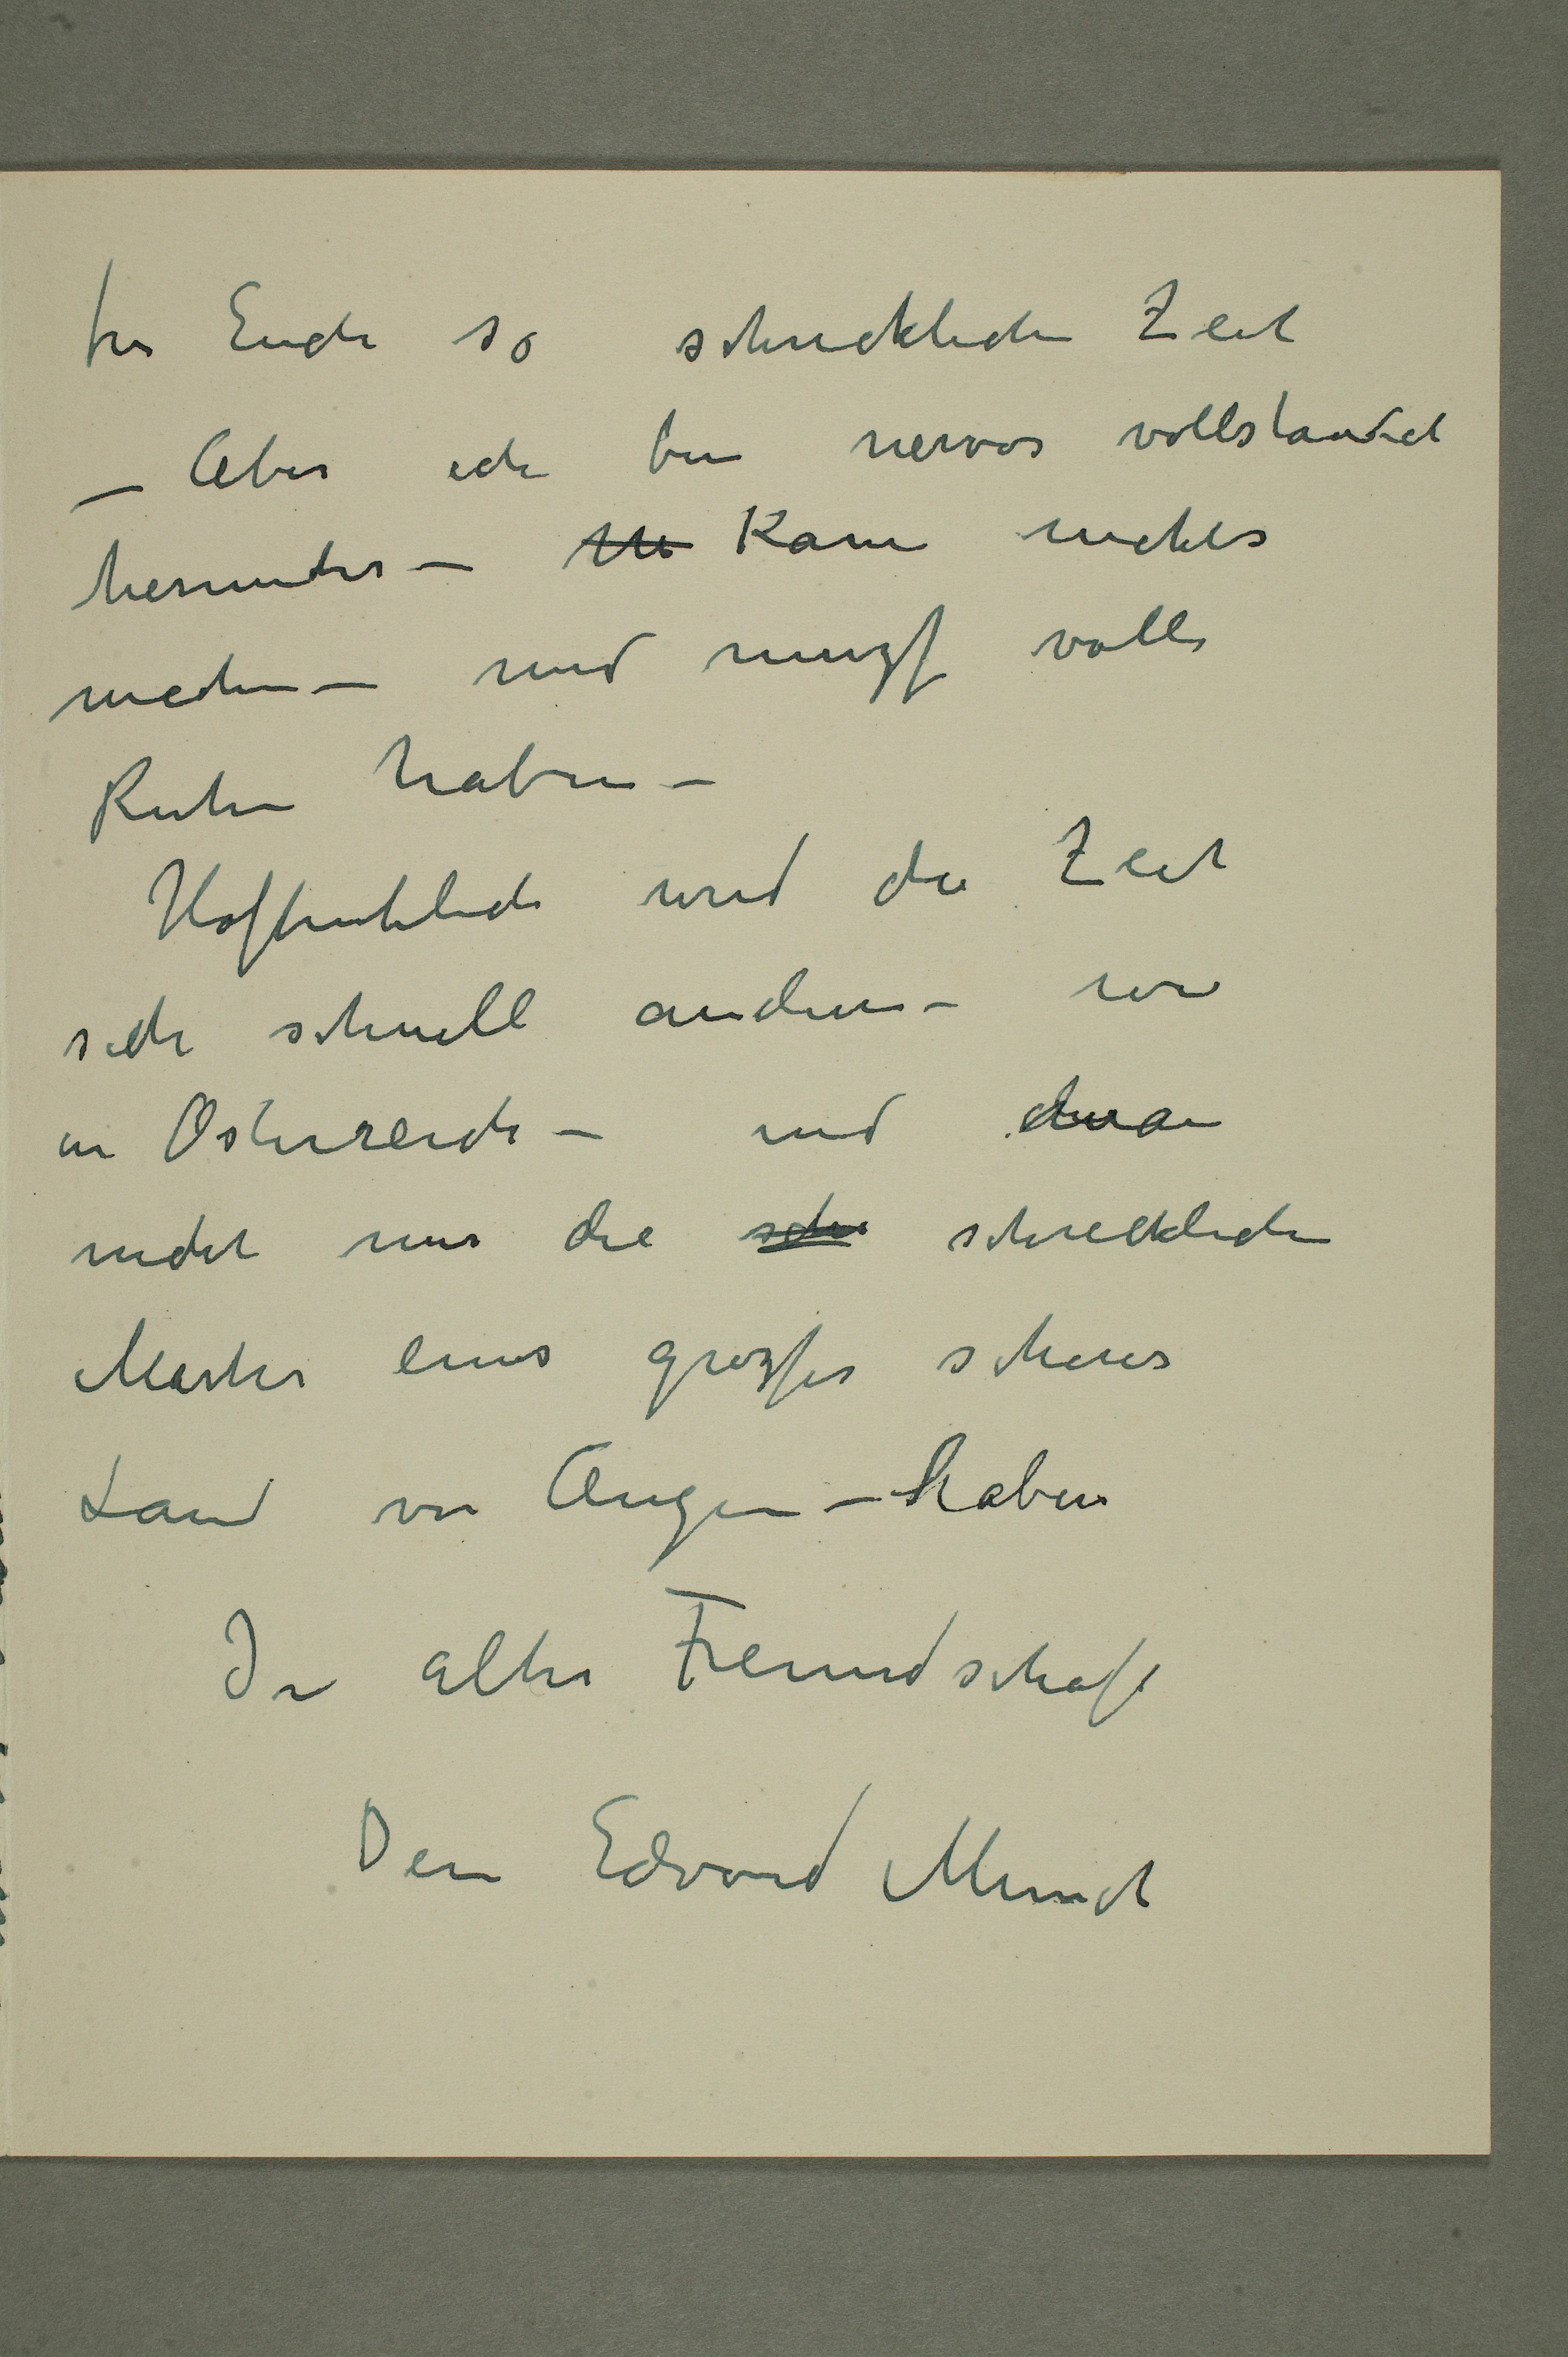 für Euch so schrecklich Zeit
– Aber ich bin nervos vollstandich
herunter – Kann nichts
machen – und muszs volle
Ruhe haben –
Hoffentlich wird die Zeit
sich schnell andern – wie
in Osterreich – und
nicht nur die sche schreckliche
Marter eines groszses schenes
Land vor Augen – haben
In alter Freundschaft
Dein Edvard Munch